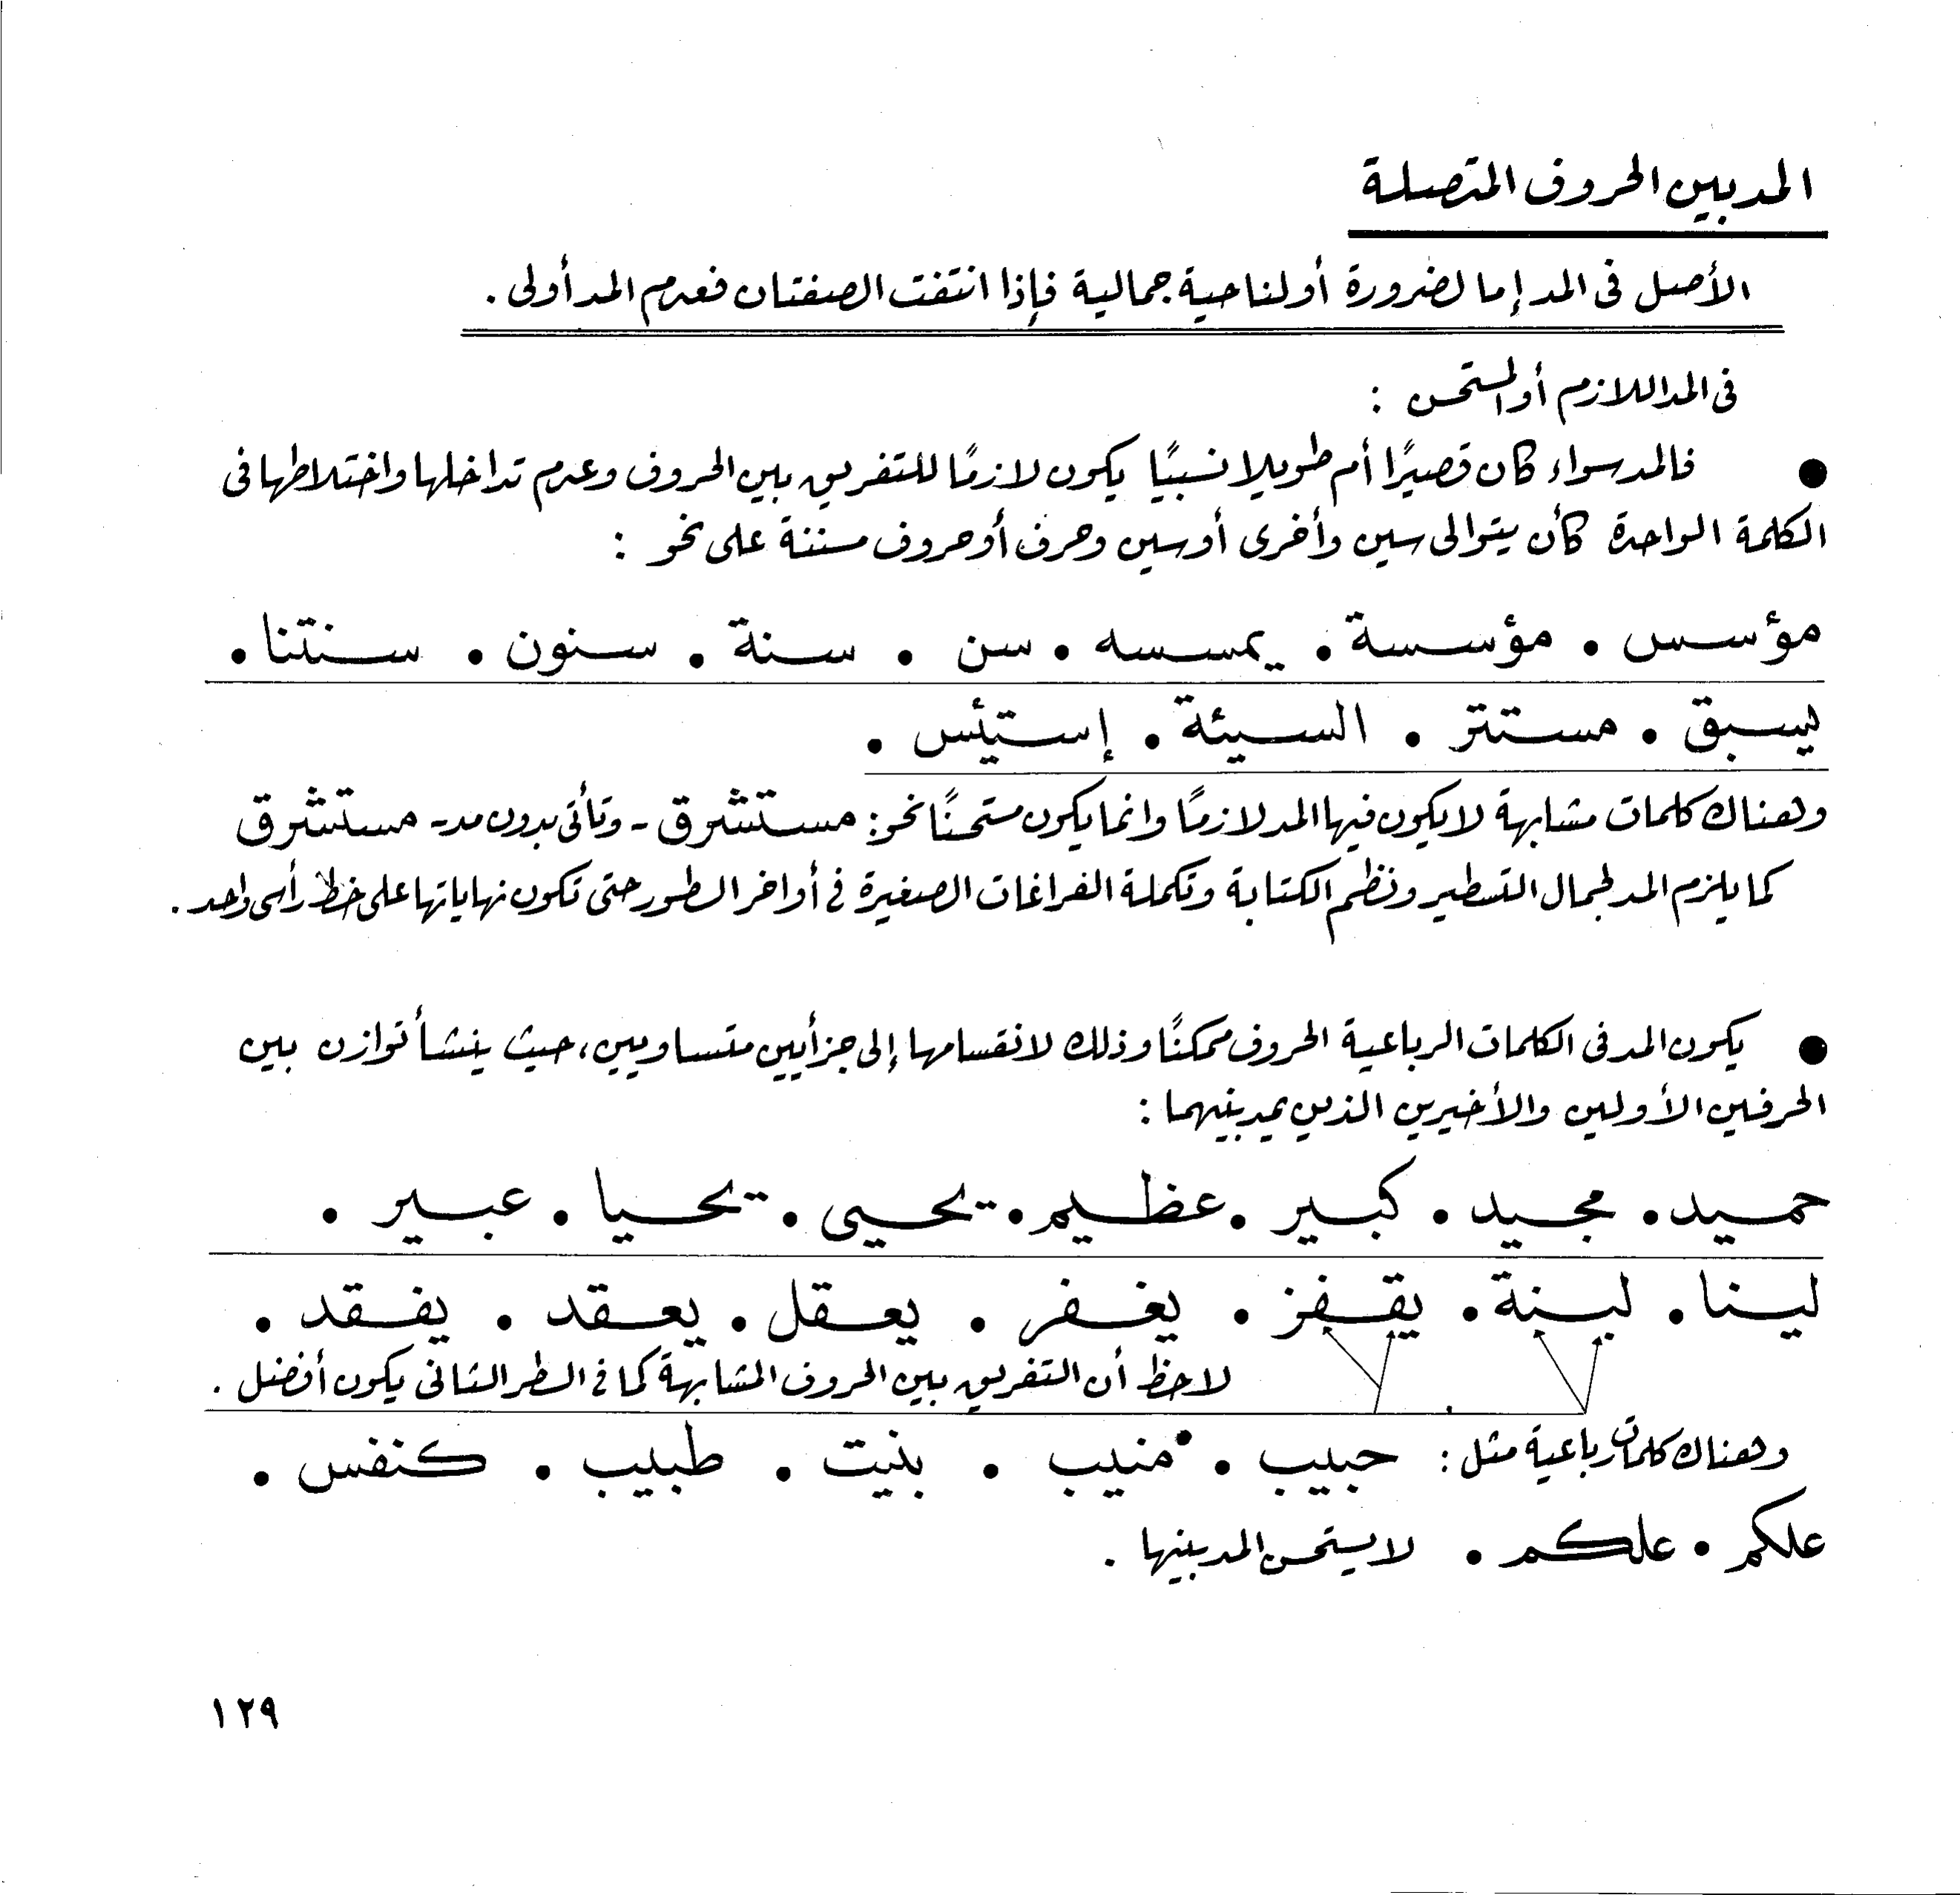 المد بين الحروف المتصلة
الأصل فى المد إما لضرورة أو لناحية جمالية فإذا انتفت الصفتان فعدم المد أولى .
فى المد اللازم أو المستحسن :
● فالمد سواء كان قصيرًا أم طويلا نسبيًا يكون لازمًا للتفريق بين الحروف وعدم تداخلها واختلاطها فى
الكلمة الواحدة كأن يتوالى سين وأخرى أو سين وحرف أو حروف مسننة على نحو :
مؤسس . مؤسسة . يمسسه . سن . سنة . سنون . سنتنا .
يسبق . مستتر . السيئة . إستيئس .
وهناك كلمات مشابهة لا يكون فيها المد لازمًا وانما يكون مستحسنًا نحو : مستشرق - وتأتى بدون مد - مستشرق
كما يلزم المد لجمال التسطير ونظم الكتابة وتكملة الفراغات الصغيرة فى أواخر السطور حتى تكون نهاياتها على خط رأسى واحد .
● يكون المد فى الكلمات الرباعية الحروف ممكنًا وذلك لانقسامها إلى جزأيين متساويين ، حيث ينشأ توازن بين
الحرفين الأولين والأخيرين الذين يمد بينهما :
حميد . مجيد . كبير . عظيم . يحيى . يحيا . عبير .
لينا . لبنة . يقفز . يغفر . يعقل . يعقد . يفقد .
لاحظ أن التفريق بين الحروف المشابهة كما فى السطر الثانى يكون أفضل .
وهناك كلمات رباعية مثل : حبيب . منيب . بنيت . طبيب . كنفس .
علكم . علكم . لا يستحسن المد بينها .
١٢٩